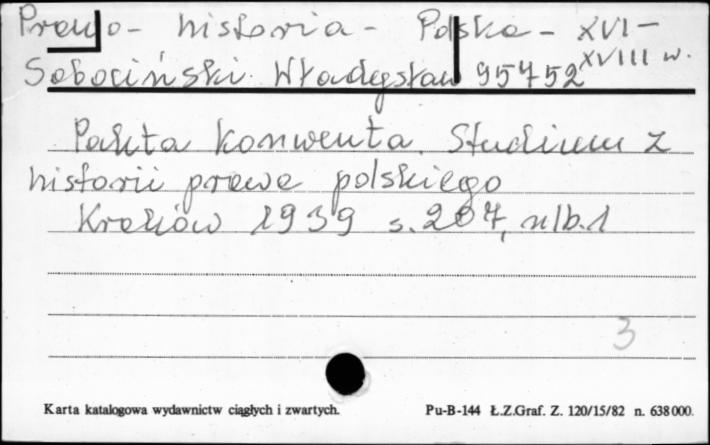 Prawo - historia - Polska - XVI -
XVIII w.
Sobociński Władysław 95752
Pakta konwenta. Studium z
historii prawa polskiego
Kraków 1939 s. 207, nlb. 1
3
Karta katalogowa wydawnictw ciągłych i zwartych.
Pu-B-144 Ł.Z.Graf. Z. 120/15/82 n. 638000.